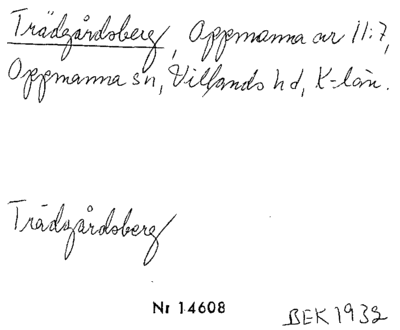 Trädgårdsberg, Oppmanna ar 11:7,
Oppmanna sn, Villands hd, K-län.
Trädgårdsberg
Nr 14608
BEK 1932